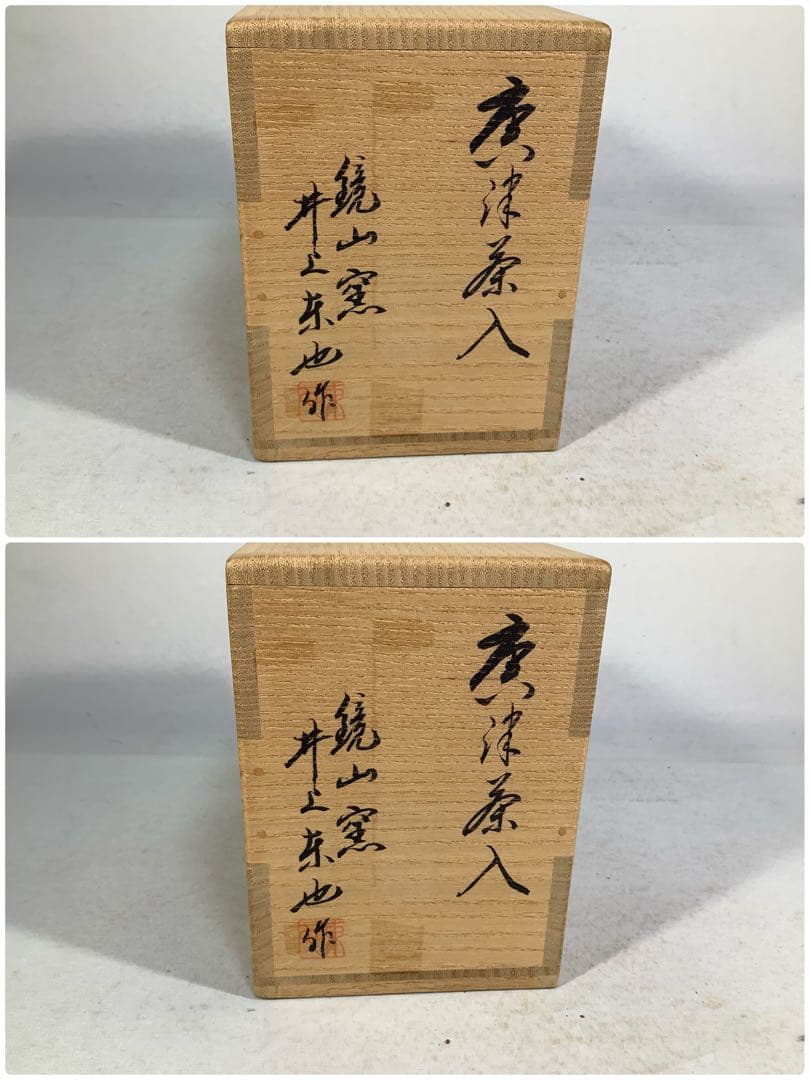 唐津茶入
鏡山窯
井上東也作
唐津茶入
鏡山窯
井上東也作